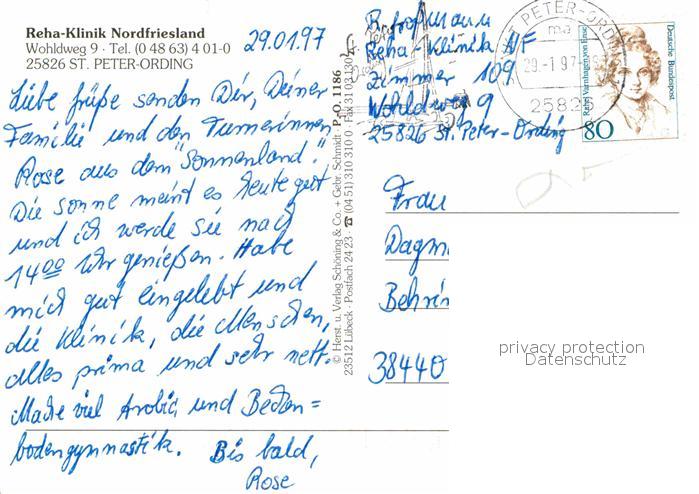 Reha-Klinik Nordfriesland
Wohldweg 9 · Tel. (0 48 63) 4 01-0
25826 ST. PETER-ORDING
29.01.97
Liebe Grüße senden Dir, Deiner
Familie und den Turnerinnen
Rose aus dem "Sonnenland".
Die Sonne meint es heute gut
und ich werde sie nach
14⁰⁰ Uhr genießen. Habe
mich gut eingelebt und
die Klinik, die Menschen,
alles prima und sehr nett.
Mache viel Arobic und Becken=
bodengymnastik. Bis bald,
Rose
© Herst. u. Verlag Schöning & Co. + Gebr. Schmidt · Pr.O. 1186
23512 Lübeck · Postfach 24 23 · ☎ (04 51) 310 310 0 · Fax 31 03
Reha-Klinik NF
Zimmer 109
Wohldweg 9
25826 St. Peter-Ording
ST. PETER-ORDING
ma
29.-1.97
25826
Rahel Varnhagen von Ense
Deutsche Bundespost
80
Frau
Dagm
Behrin
38440
privacy protection
Datenschutz